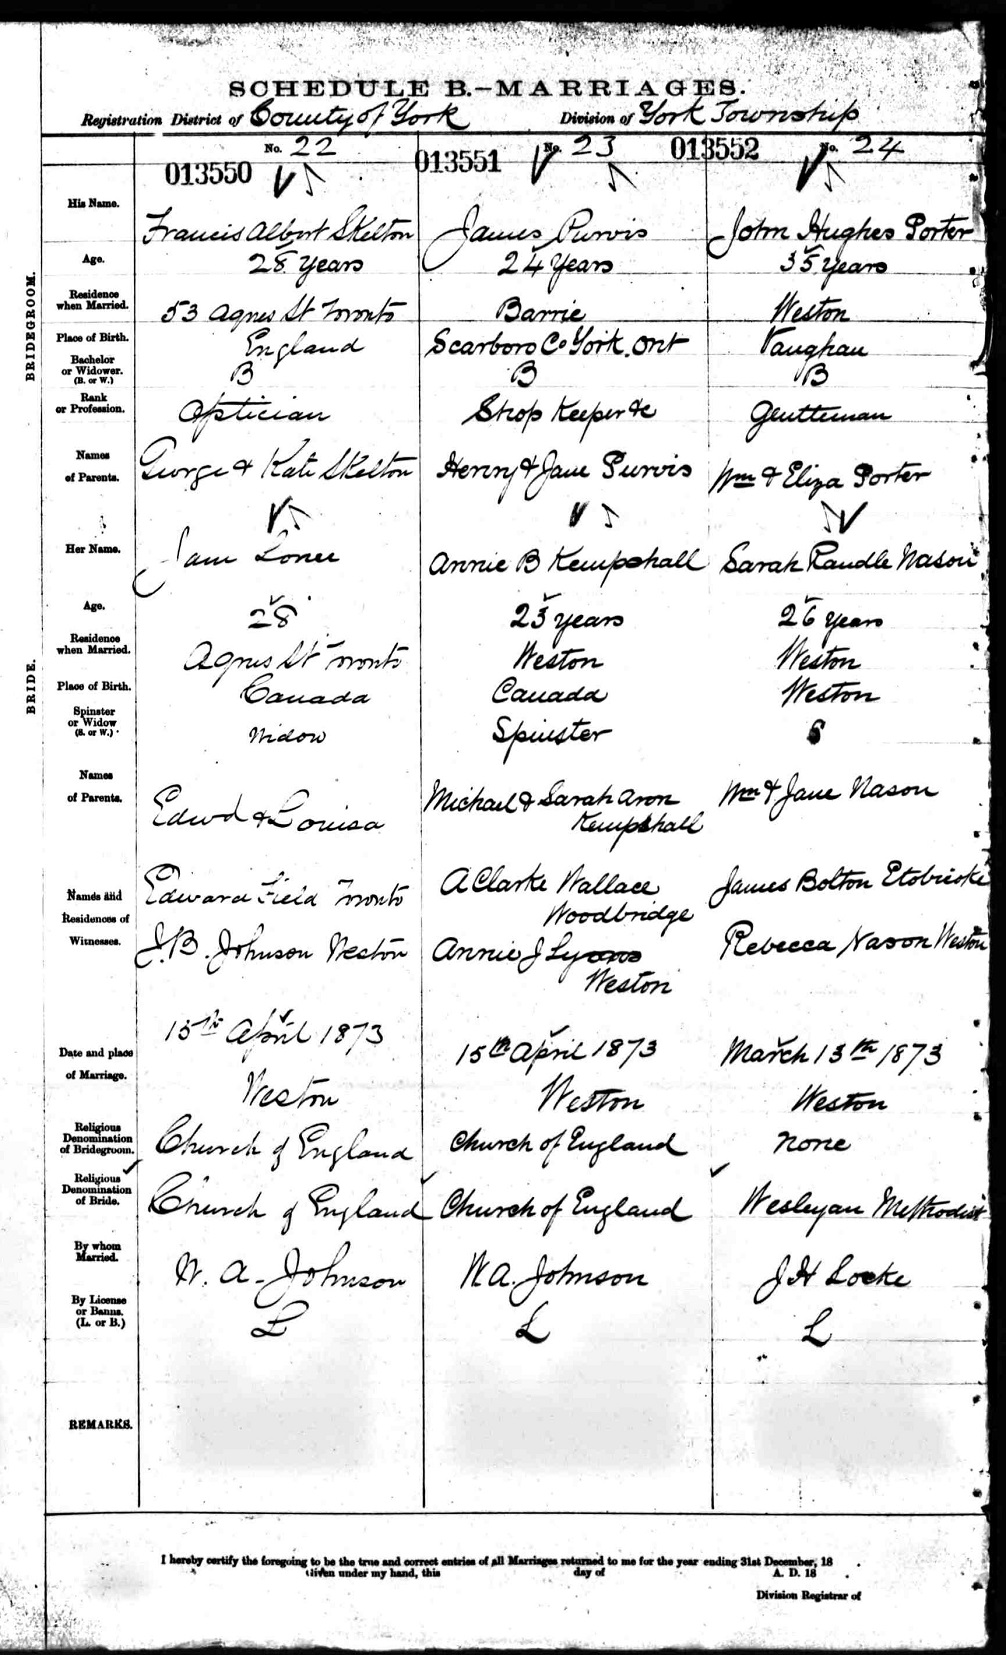 SCHEDULE B.-MARRIAGES.
Registration District of County of York Division of York Township
No. 22 No. 23 No. 24
013550 013551 013552
His Name. Francis Albert Skelton James Purvis John Hughes Porter
Age. 28 Years 24 Years 35 years
Residence when Married. 53 Agnes St Toronto Barrie Weston
Place of Birth. England Scarboro Co York. Ont Vaughan
Bachelor or Widower. (B. or W.) B B B
Rank or Profession. Optician Shop Keeper &c Gentleman
Names of Parents. George & Kate Skelton Henry & Jane Purvis Wm & Eliza Porter
BRIDEGROOM.
Her Name. Jane Annie B Kempshall Sarah Randle Nason
Age. 28 23 years 26 Years
Residence when Married. Agnes St Toronto Weston Weston
Place of Birth. Canada Canada Weston
Spinster or Widow (S. or W.) Widow Spinster S
BRIDE.
Names of Parents. Edwd & Louisa Michael & Sarah Aron Kempshall Wm & Jane Nason
Names and Residences of Witnesses. Edward Field Toronto A Clarke Wallace Woodbridge James Bolton Etobicoke
J. B. Johnson Weston Annie J Lyons Weston Rebecca Nason Weston
Date and place of Marriage. 15th April 1873 Weston 15th April 1873 Weston March 13th 1873 Weston
Religious Denomination of Bridegroom. Church of England Church of England None
Religious Denomination of Bride. Church of England Church of England Wesleyan Methodist
By whom Married. W. A. Johnson W A. Johnson J H Locke
By License or Banns. (L. or B.) L L L
REMARKS.
I hereby certify the foregoing to be the true and correct entries of all Marriages returned to me for the year ending 31st December, 18 .
Given under my hand, this day of A. D. 18 .
Division Registrar of